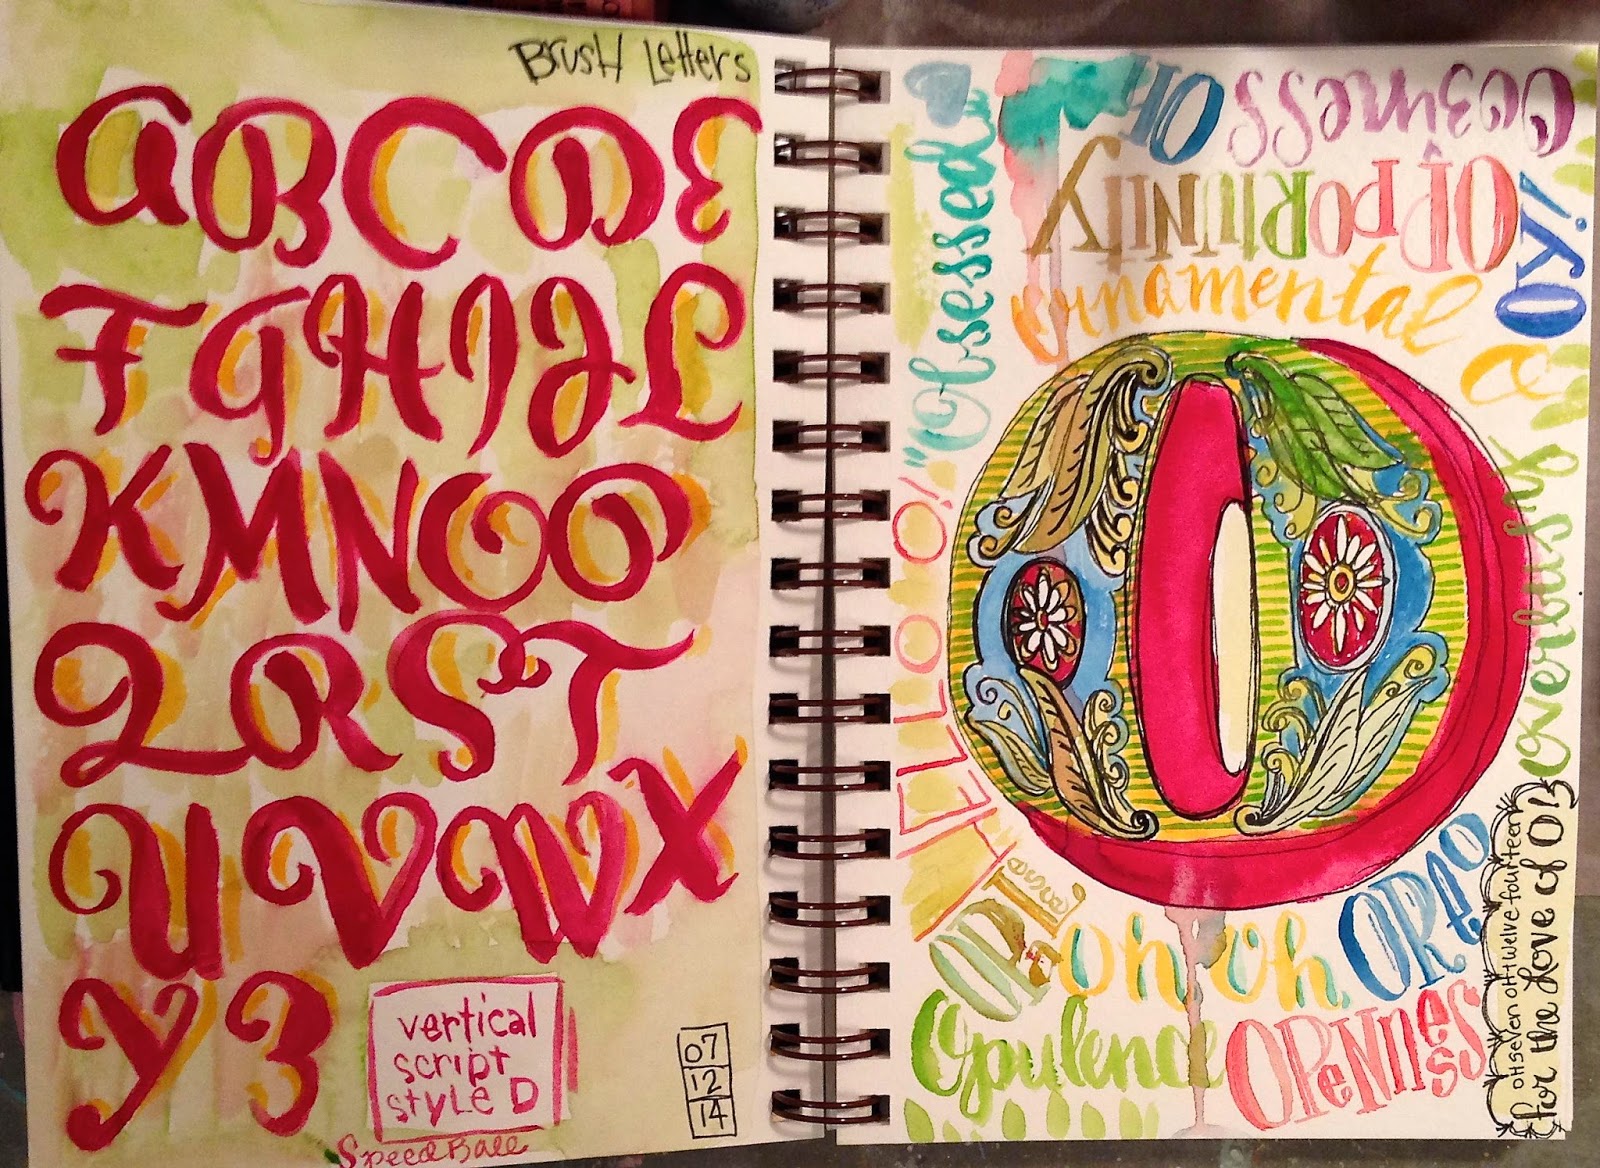 Brush Letters
ABCDE
FGHIJL
KMNOP
QRST
UVWX
YZ
vertical
script
style D
SpeedBall
07
12
14
"Obsessed"
OF
OPPORTUNITY
ornamental
OY!
O
HELLO O!
oh oh.
OREO
Opulence
OPENNESS
ohseven ohtwelve fourteen
for the love of